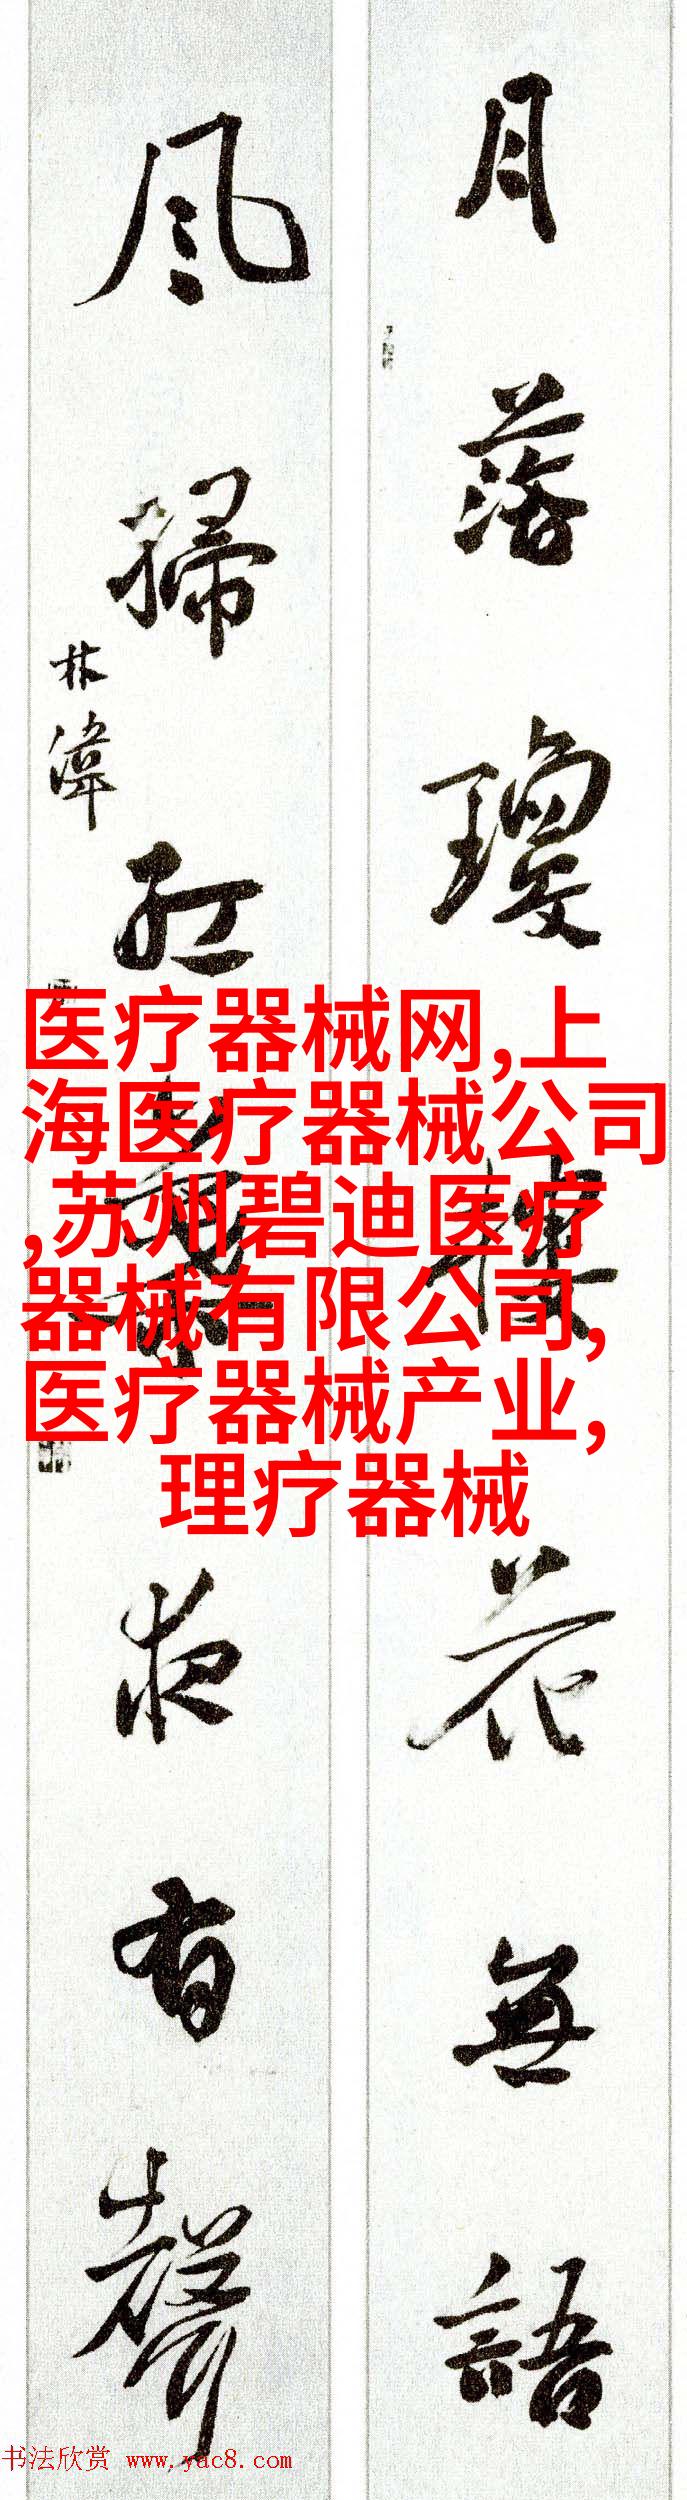 月落瓊樓花無語
風掃紅葉夜有聲
林漳
医疗器械网,上
海医疗器械公司
,苏州碧迪医疗
器械有限公司,
医疗器械产业,
理疗器械
书法欣赏 www.yac8.com